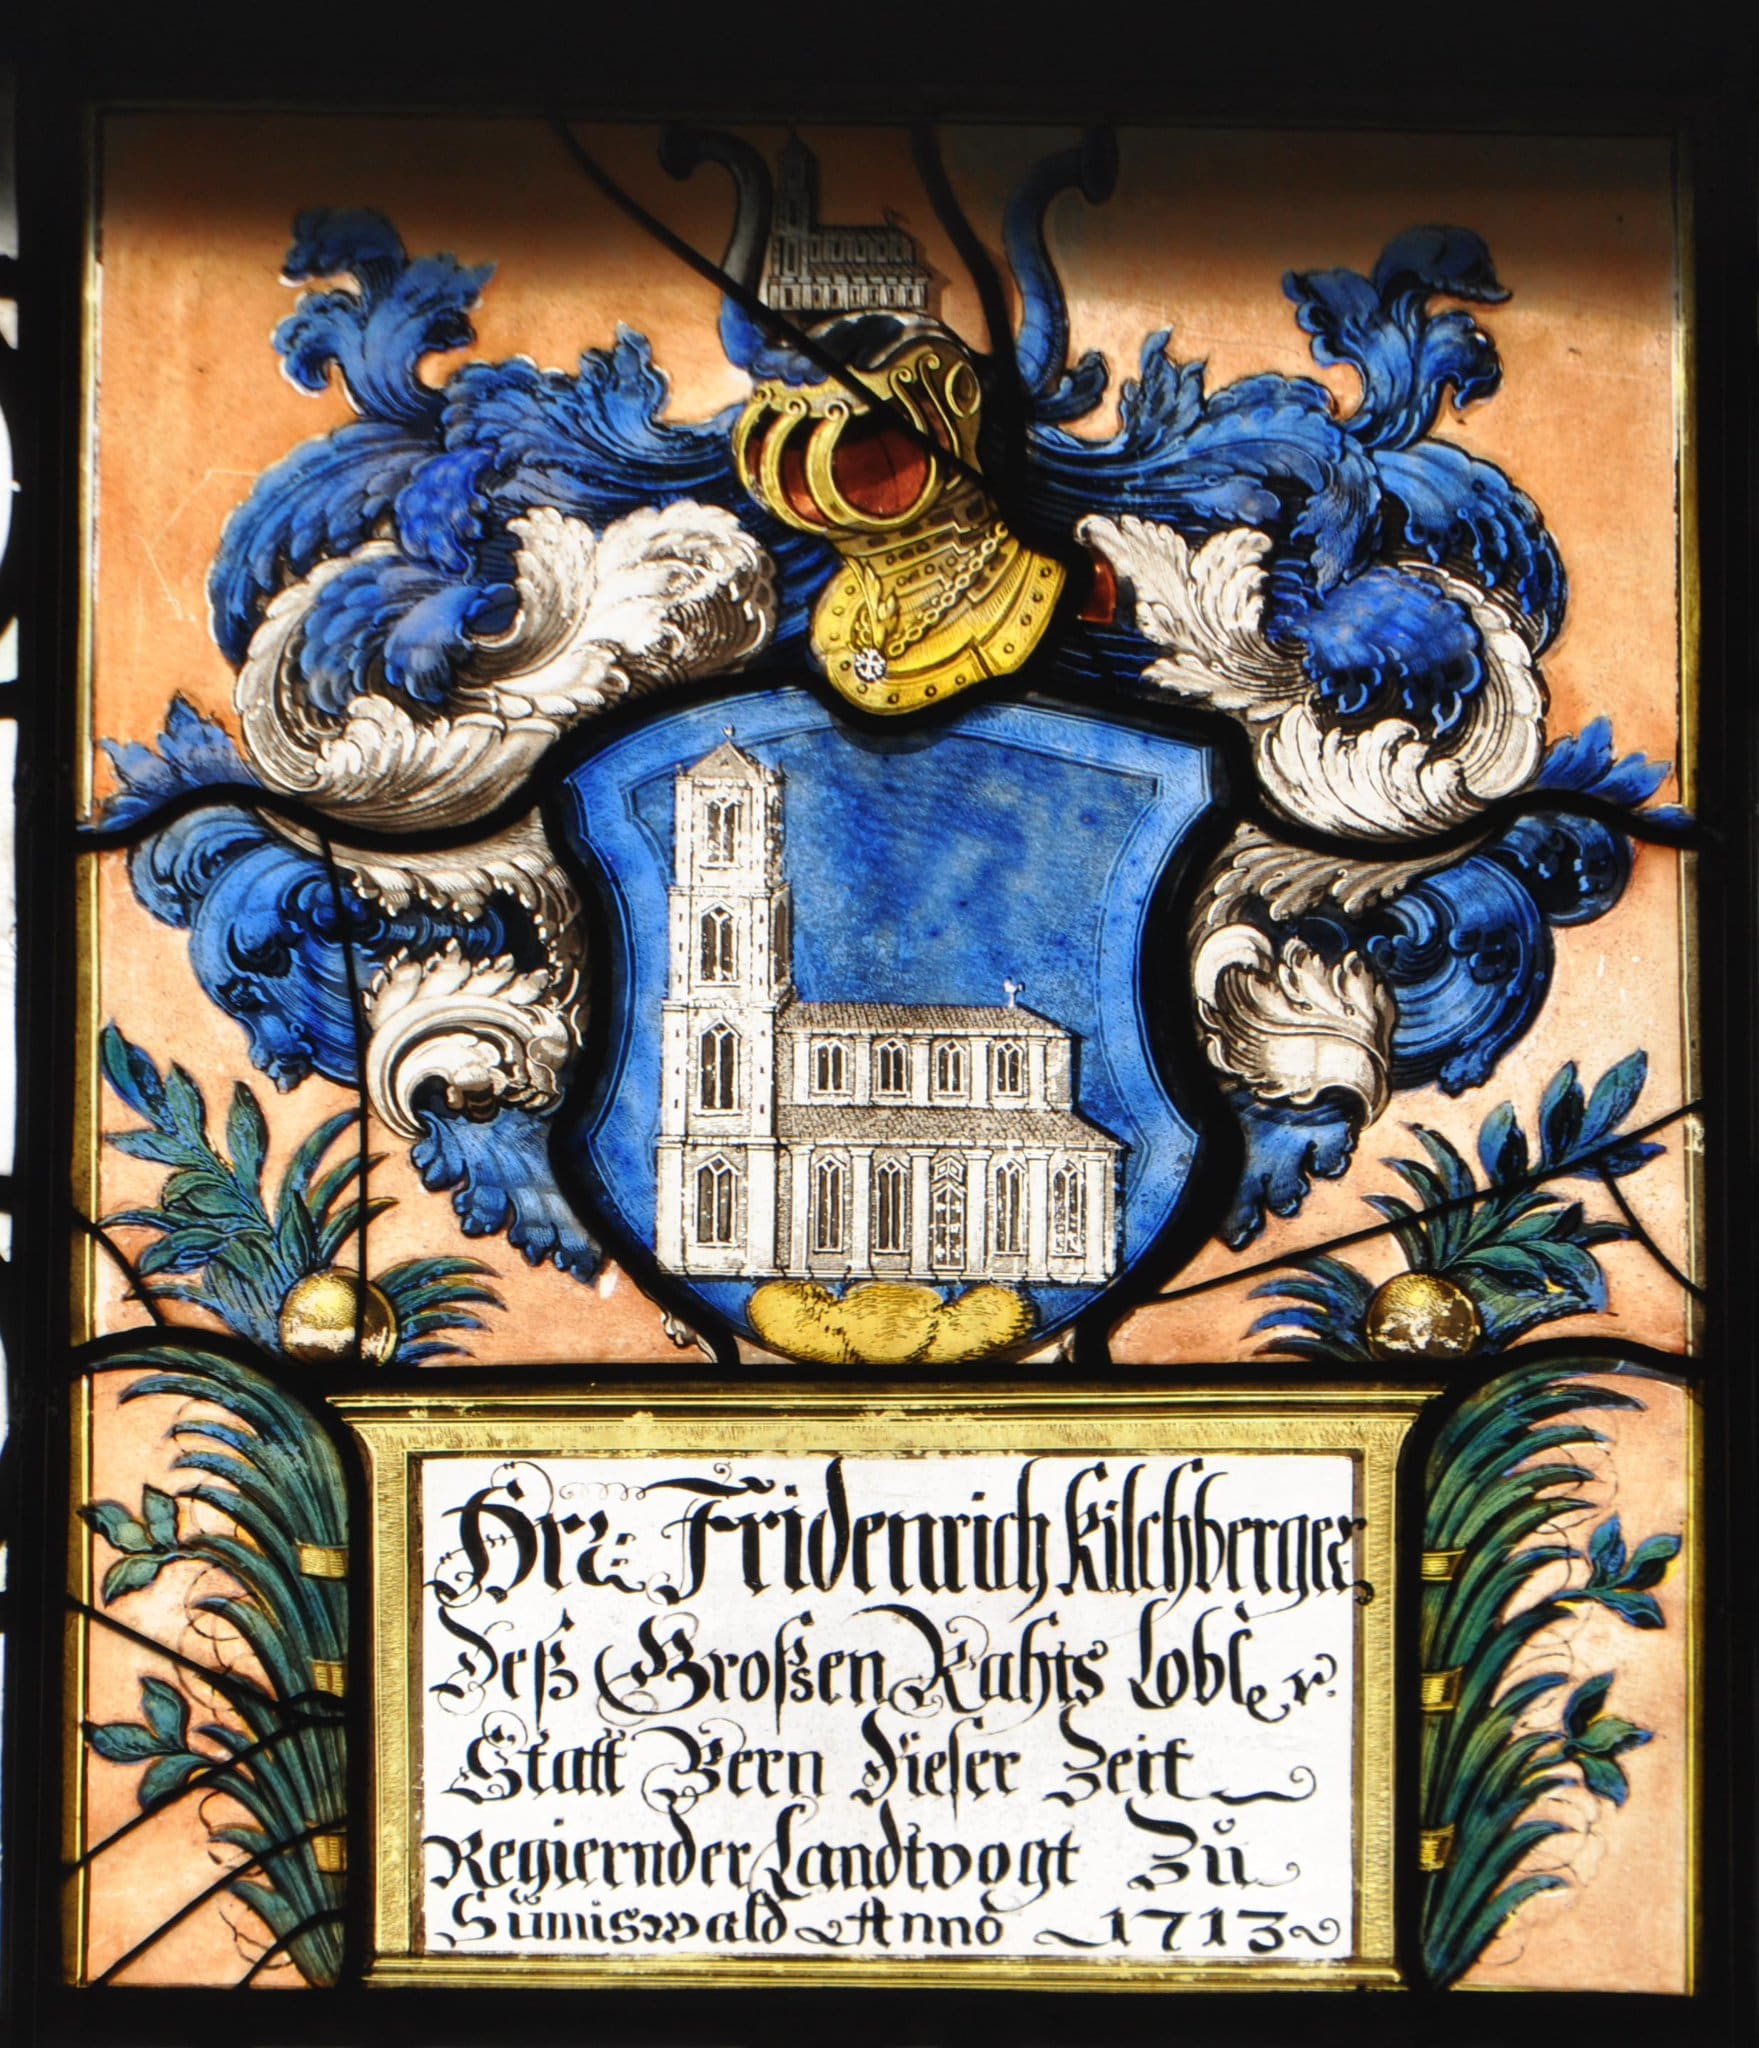 Hr: Fridenrich Kilchberger
Deß Großen Rahts Lobl.r
Statt Bern Dieser Zeit
Regiernder Landtvogt Zů
Sumiswald Anno 1713